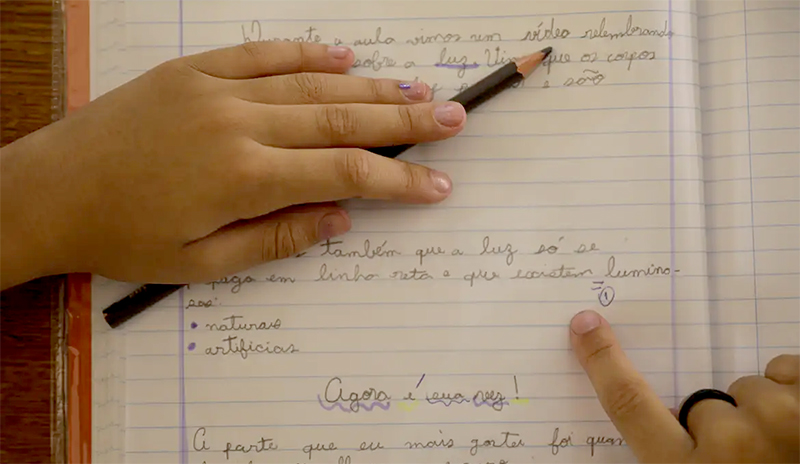 Durante a aula vimos um vídeo relembrando
sobre a luz. Vim que os corpos
e são
também que a luz só se
propaga em linha reta e que existem lumino-
sos:
1
• naturais
• artificias
Agora é sua vez!
A parte que eu mais gostei foi quan